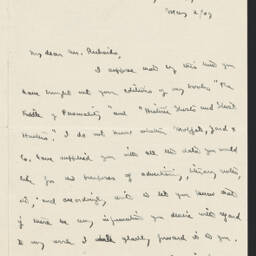 May 2/09
My dear Mr. Richards,
I suppose that by this time you
have brought out your editions of my books "The
Riddle of Personality" and "Historic Ghosts and Ghost
Hunters." I do not know whether Moffat, Yard &
Co. have supplied you with all the data you would
like for the purposes of advertising, literary notes,
etc., and accordingly, write to let you know that
if there be any information you desire with regard
to my work I shall gladly forward it to you.